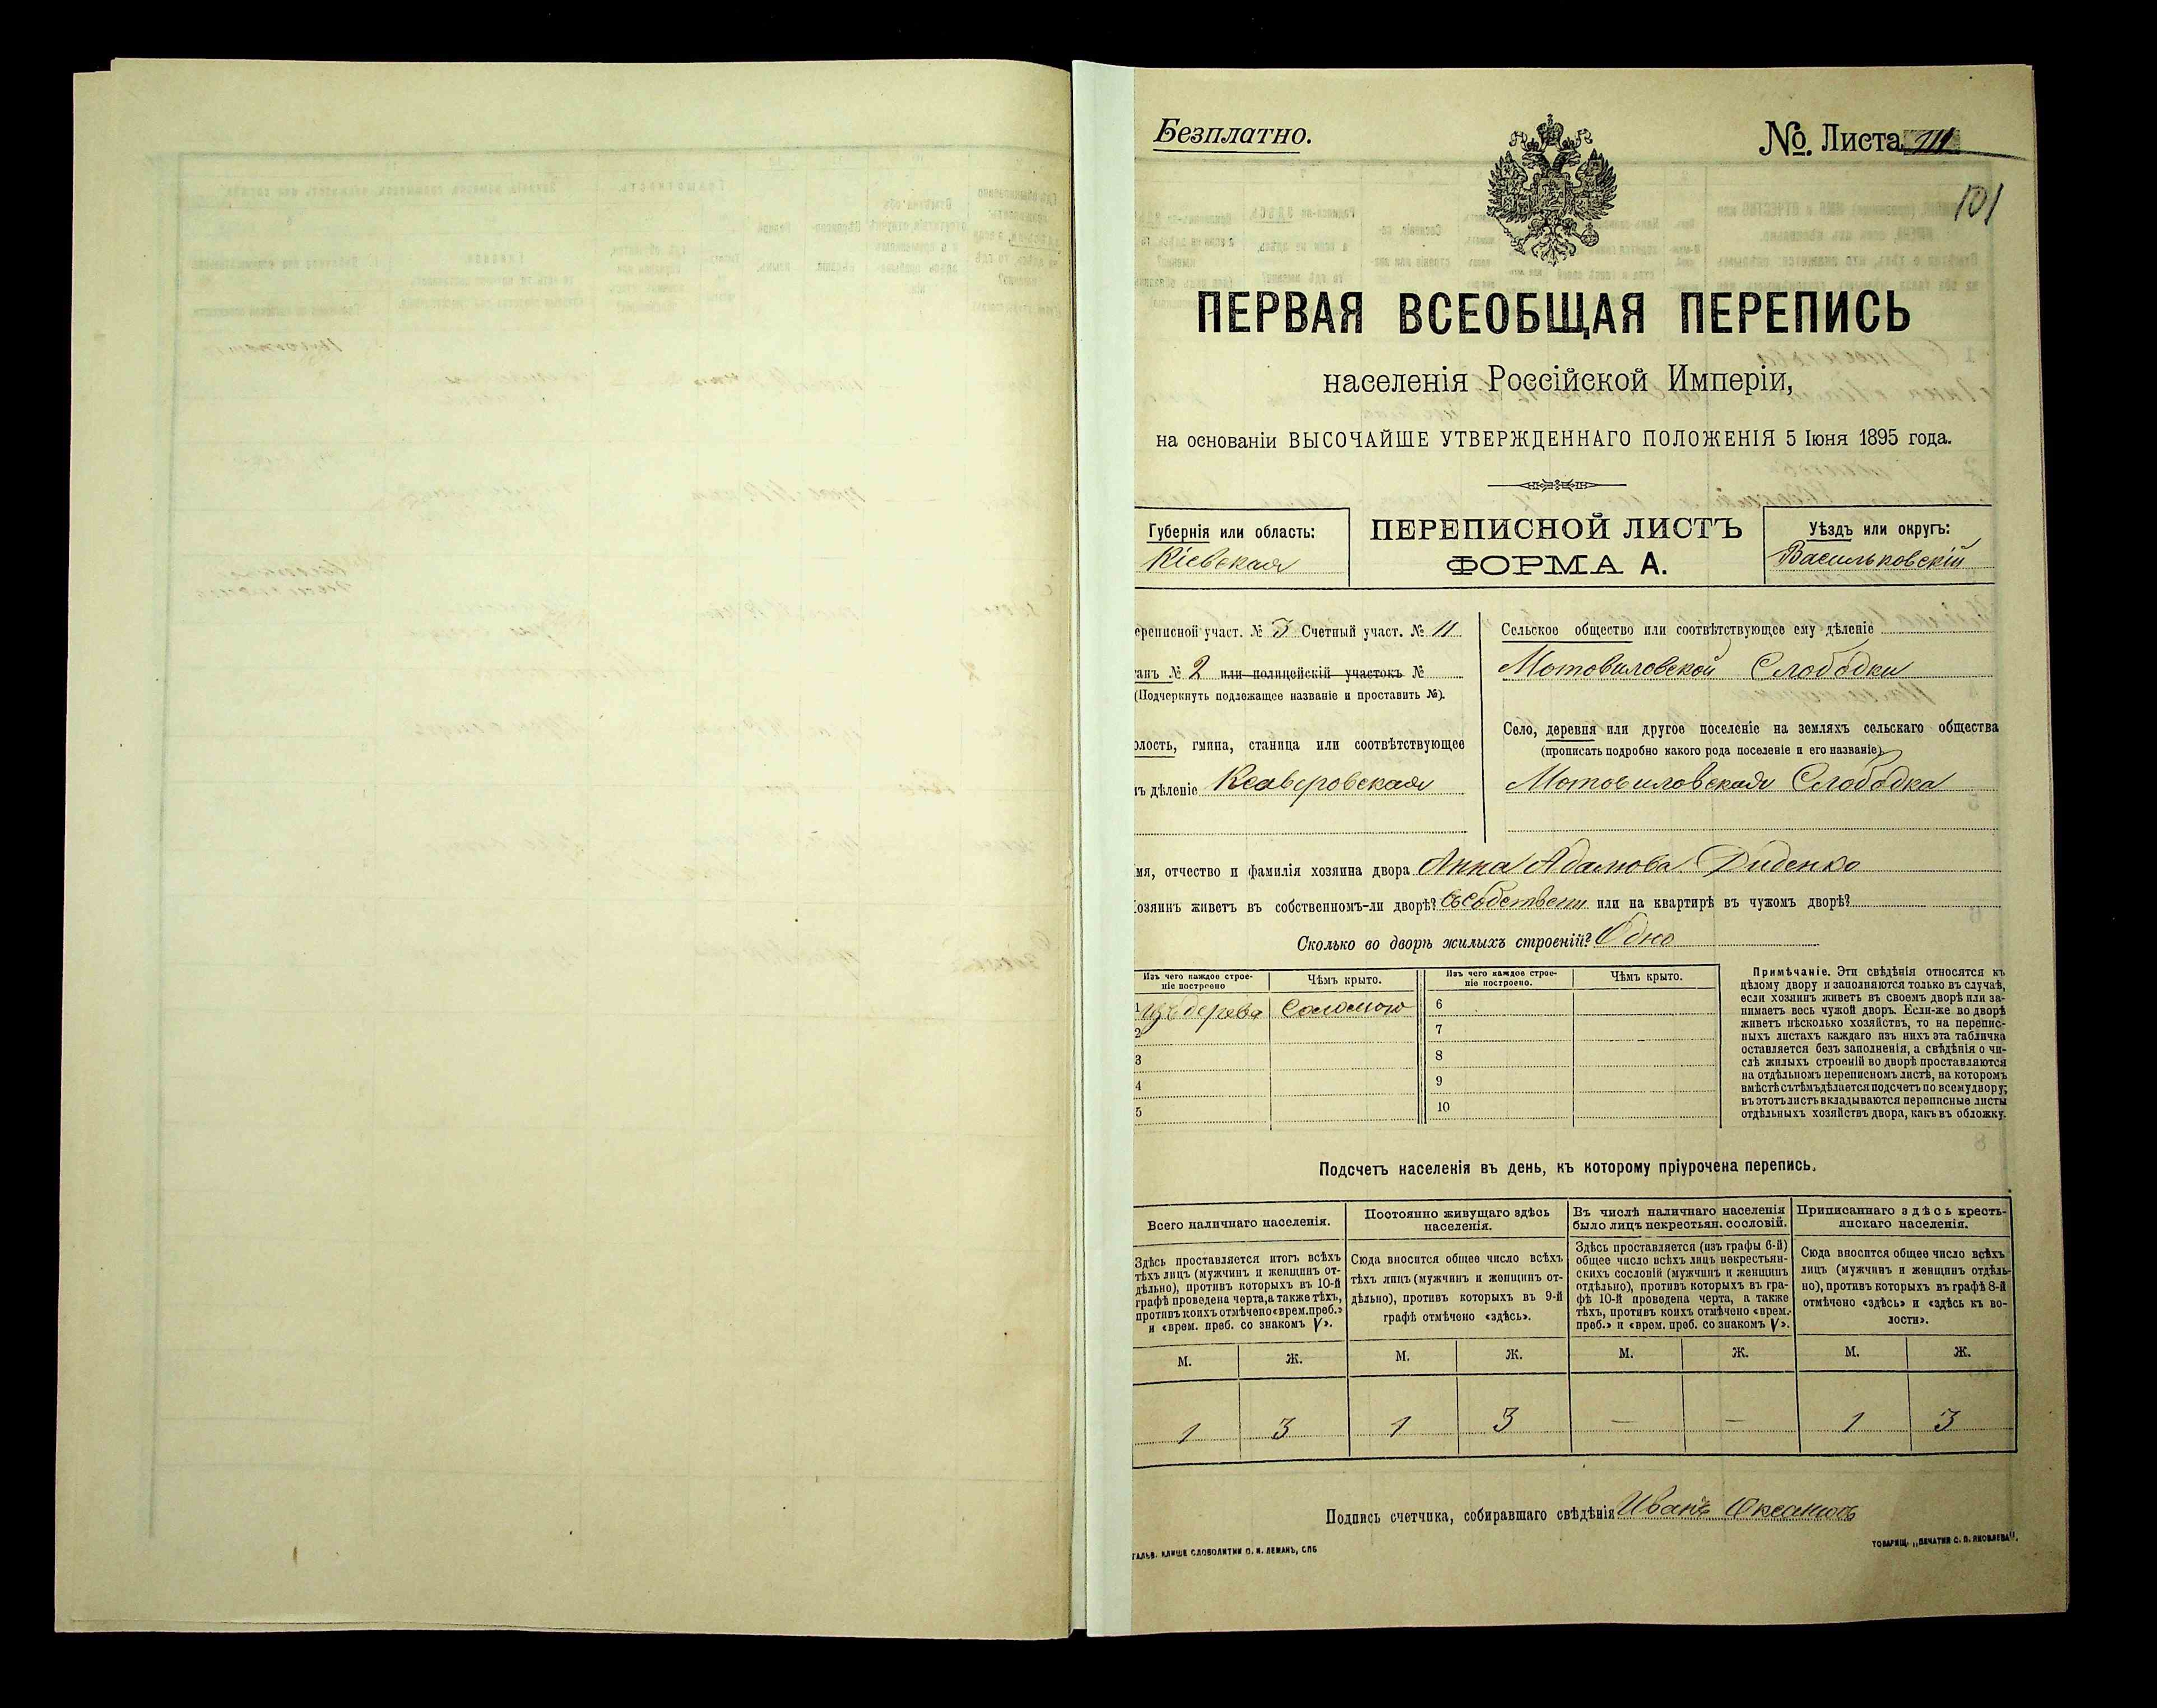 Безплатно.
№ Листа 111
101
ПЕРВАЯ ВСЕОБЩАЯ ПЕРЕПИСЬ
населенія Россійской Имперіи,
на основаніи ВЫСОЧАЙШЕ УТВЕРЖДЕННАГО ПОЛОЖЕНІЯ 5 Іюня 1895 года.
Губернія или область:
Кіевская
ПЕРЕПИСНОЙ ЛИСТЪ
ФОРМА А.
Уѣздъ или округъ:
Васильковскій
ереписной участ. № 3 Счетный участ. № 11
анъ № 2 или полицейскій участокъ №
(Подчеркнуть подлежащее названіе и проставить №).
олость, гмина, станица или соотвѣтствующее
ъ дѣленіе Ксаверовская
Сельское общество или соотвѣтствующее ему дѣленіе
Мотовиловской Слободки
Село, деревня или другое поселеніе на земляхъ сельскаго общества
(прописать подробно какого рода поселеніе и его названіе)
Мотовиловская Слободка
мя, отчество и фамилія хозяина двора Анна Адамова Диденко
озяинъ живетъ въ собственномъ-ли дворѣ? въ собствен. или на квартирѣ въ чужомъ дворѣ?
Сколько во дворѣ жилыхъ строеній? Одно
Изъ чего каждое строе-
ніе построено
Чѣмъ крыто.
Изъ чего каждое строе-
ніе построено.
Чѣмъ крыто.
1 Изъ дерева Соломою
2
3
4
5
6
7
8
9
10
Примѣчаніе. Эти свѣдѣнія относятся къ
цѣлому двору и заполняются только въ случаѣ,
если хозяинъ живетъ въ своемъ дворѣ или за-
нимаетъ весь чужой дворъ. Если-же во дворѣ
живетъ нѣсколько хозяйствъ, то на перепис-
ныхъ листахъ каждаго изъ нихъ эта табличка
оставляется безъ заполненія, а свѣдѣнія о чи-
слѣ жилыхъ строеній во дворѣ проставляются
на отдѣльномъ переписномъ листѣ, на которомъ
вмѣстѣ съ тѣмъ дѣлается подсчетъ по всему двору;
въ этотъ листъ вкладываются переписные листы
отдѣльныхъ хозяйствъ двора, какъ въ обложку.
Подсчетъ населенія въ день, къ которому пріурочена перепись.
Всего наличнаго населенія.
Здѣсь проставляется итогъ всѣхъ
тѣхъ лицъ (мужчинъ и женщинъ от-
дѣльно), противъ которыхъ въ 10-й
графѣ проведена черта, а также тѣхъ,
противъ коихъ отмѣчено «врем. преб.»
и «врем. преб. со знакомъ V».
Постоянно живущаго здѣсь
населенія.
Сюда вносится общее число всѣхъ
тѣхъ лицъ (мужчинъ и женщинъ от-
дѣльно), противъ которыхъ въ 9-й
графѣ отмѣчено «здѣсь».
Въ числѣ наличнаго населенія
было лицъ некрестьян. сословій.
Здѣсь проставляется (изъ графы 6-й)
общее число всѣхъ лицъ некрестьян-
скихъ сословій (мужчинъ и женщинъ
отдѣльно), противъ которыхъ въ гра-
фѣ 10-й проведена черта, а также
тѣхъ, противъ коихъ отмѣчено «врем.
преб.» и «врем. преб. со знакомъ V».
Приписаннаго здѣсь кресть-
янскаго населенія.
Сюда вносится общее число всѣхъ
лицъ (мужчинъ и женщинъ отдѣль-
но), противъ которыхъ въ графѣ 8-й
отмѣчено «здѣсь» и «здѣсь къ во-
лости».
М. Ж. М. Ж. М. Ж. М. Ж.
1 3 1 3 — — 1 3
Подпись счетчика, собиравшаго свѣдѣнія Иванъ
ГАЛЬВ. КЛИШЕ СЛОВОЛИТНИ О. И. ЛЕМАНЪ, СПБ
ТОВАРИЩ. „ПЕЧАТНЯ С. П. ЯКОВЛЕВА".